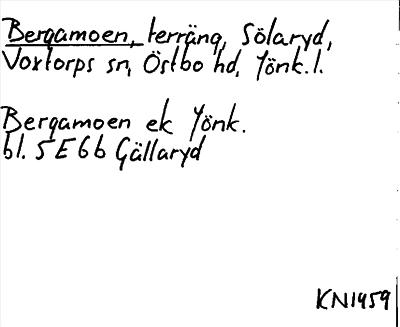 Bergamoen, terräng, Sölaryd,
Voxtorps sn, Östbo hd, Jönk.l.
Bergamoen ek Jönk.
bl. 5E6b Gällaryd
KN1959